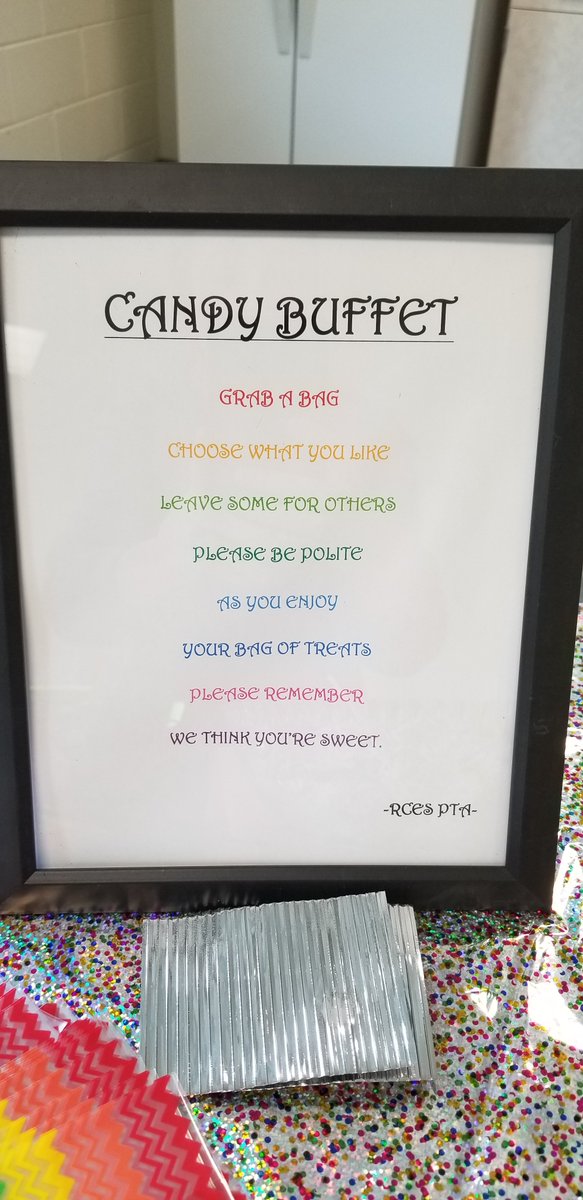 CANDY BUFFET
GRAB A BAG
CHOOSE WHAT YOU LIKE
LEAVE SOME FOR OTHERS
PLEASE BE POLITE
AS YOU ENJOY
YOUR BAG OF TREATS
PLEASE REMEMBER
WE THINK YOU'RE SWEET.
-RCES PTA-